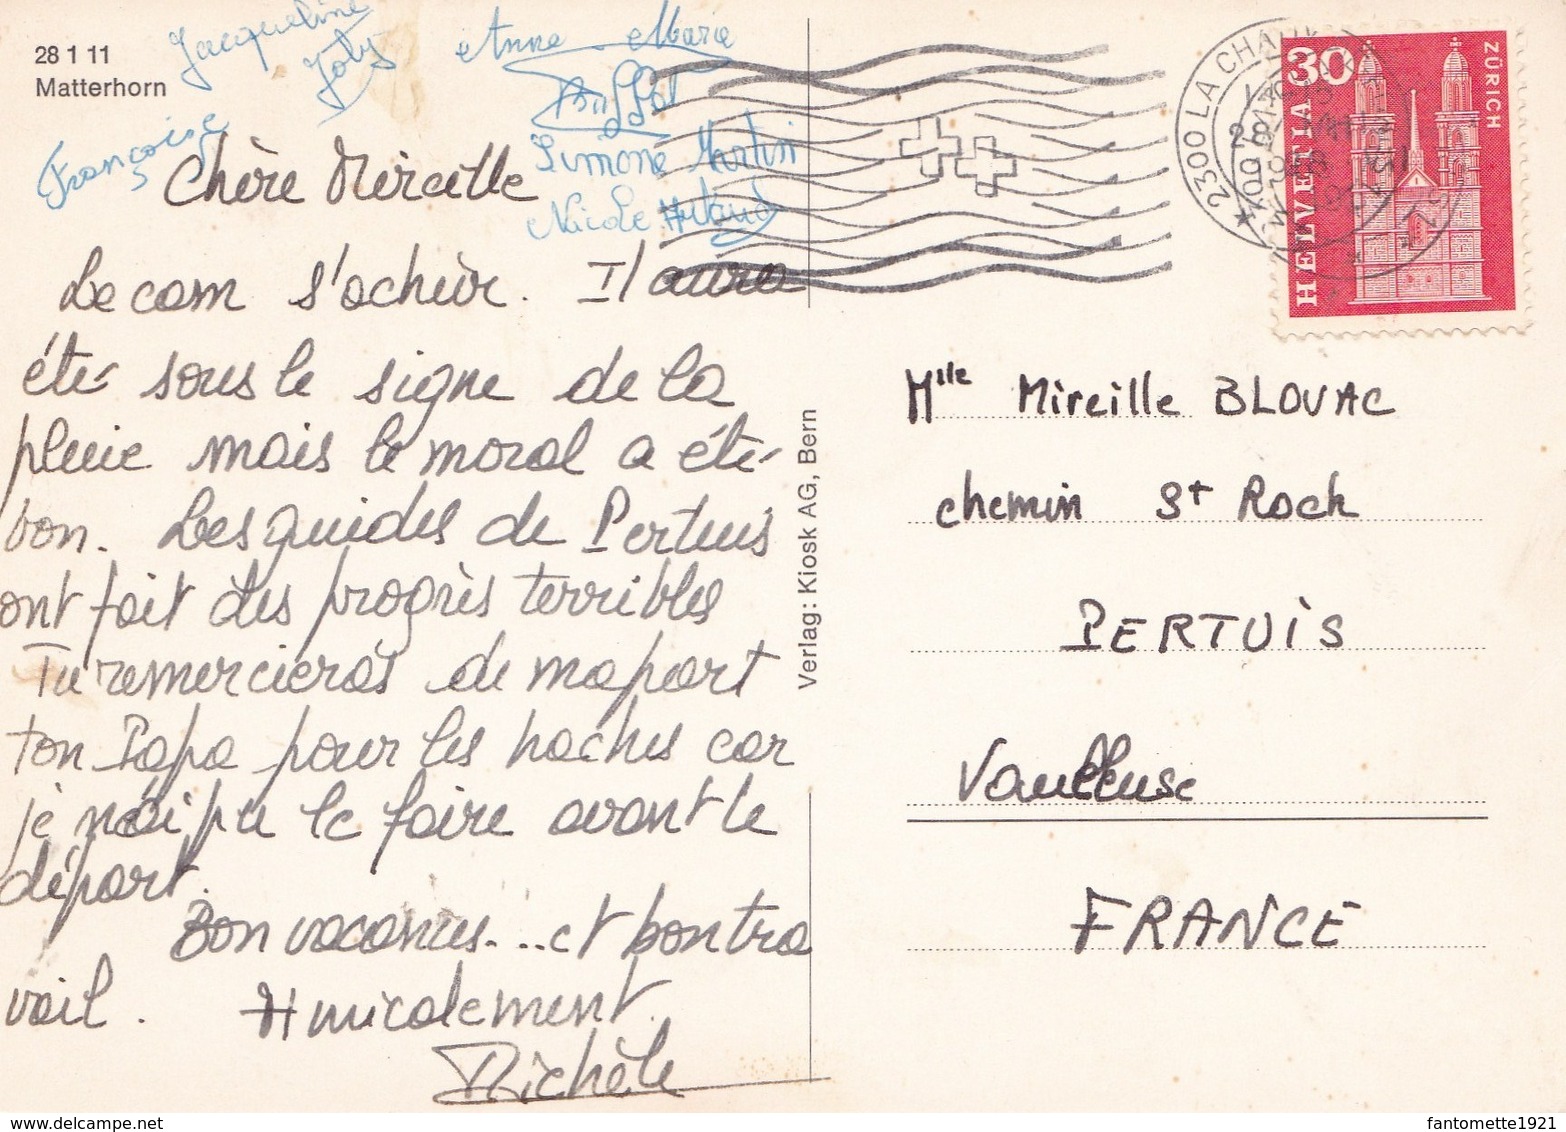 28 1 11
Matterhorn
Jacqueline
Joly
Anne-Marie
Françoise
Simone Martin
Nicole
Chère Mireille
Le cam s'achève. Il aura
été sous le signe de la
pluie mais le moral a été
bon. Les guides de Pertuis
ont fait des progrès terribles
Tu remercieras de ma part
ton Papa pour les haches car
je n'ai pu le faire avant le
départ.
Bon vacances... et bon tra
vail. Amicalement.
Michèle
Verlag: Kiosk AG, Bern
2300 LA CHAUX
30
HELVETIA
ZÜRICH
Mlle Mireille BLOVAC
chemin St Roch
PERTUIS
Vaucluse
FRANCE
fantomette1921